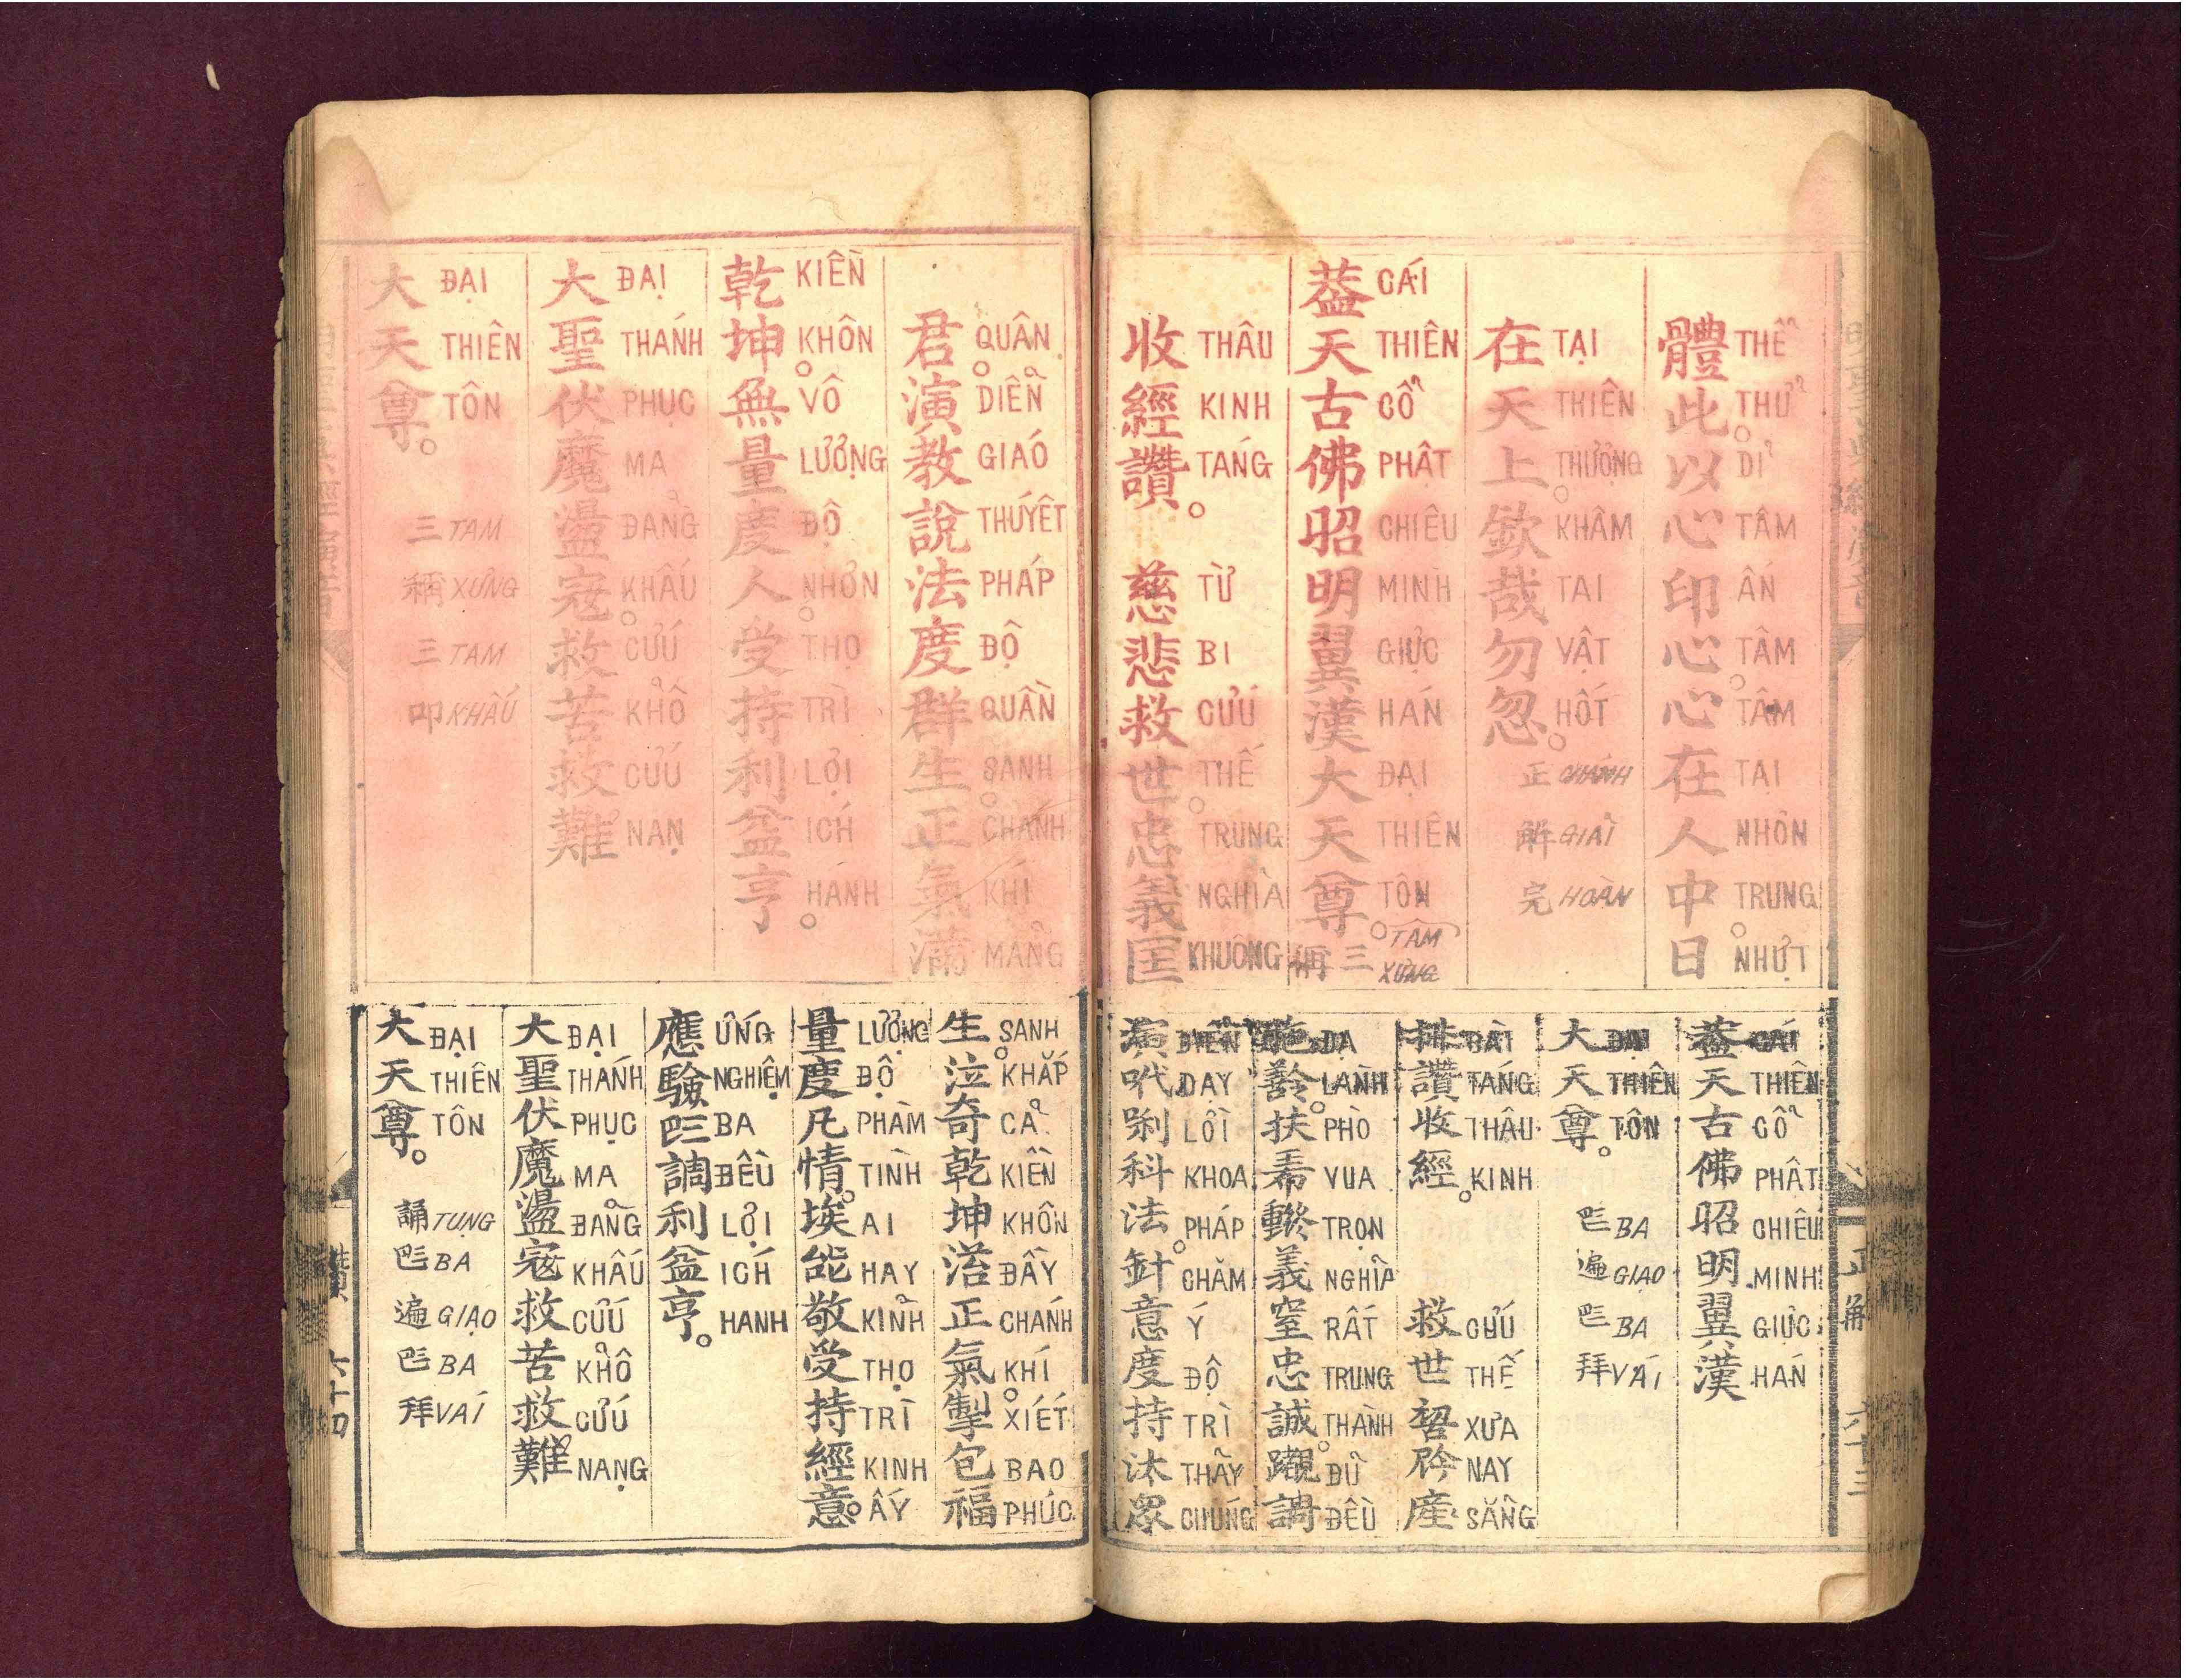 體此。以心印心。心在人中。日
THỂ THỬ DĨ TÂM ẤN TÂM TÂM TẠI NHƠN TRUNG NHỰT
在天上。欽哉勿忽。
TẠI THIÊN THƯỢNG KHÂM TAI VẬT HỐT
正解完
CHÁNH GIẢI HOÀN
蓋天古佛昭明翼漢大天尊。
CÁI THIÊN CỔ PHẬT CHIÊU MINH GIỰC HÁN ĐẠI THIÊN TÔN
三稱
TAM XƯNG
收經讚。
THÂU KINH TÁNG
慈悲救世。忠義匡
TỪ BI CỨU THẾ TRUNG NGHĨA KHUÔNG
君。演教說法度群生。正氣滿
QUÂN DIỄN GIÁO THUYẾT PHÁP ĐỘ QUẦN SANH CHÁNH KHÍ MẢNG
乾坤。無量度人。受持利益亨。
KIỀN KHÔN VÔ LƯỢNG ĐỘ NHƠN THỌ TRÌ LỢI ÍCH HANH
大聖伏魔盪寇。救苦救難
ĐẠI THÁNH PHỤC MA ĐẢNG KHẤU CỨU KHỔ CỨU NẠN
大天尊。
ĐẠI THIÊN TÔN
三稱三叩
TAM XƯNG TAM KHẤU
蓋天古佛昭明翼漢
CÁI THIÊN CỔ PHẬT CHIÊU MINH GIỰC HÁN
大天尊。
ĐẠI THIÊN TÔN
𠀧遍𠀧拜
BA GIẠO BA VÁI
排讚收經。
BÀI TÁNG THÂU KINH
救世𠸗𫢩產
CỨU THẾ XƯA NAY SẴNG
扶希義窒忠誠。調
DẠ LÀNH PHÒ VUA TRỌN NGHĨA RẤT TRUNG THÀNH ĐỦ ĐỀU
演科法。針意度持眾
DIỄN DẠY LỜI KHOA PHÁP CHĂM Ý ĐỘ TRÌ THẢY CHÚNG
生。泣奇乾坤滔正氣。掣包福
SANH KHẮP CẢ KIỀN KHÔN ĐẦY CHÁNH KHÍ XIẾT BAO PHÚC
量度凡情。埃能敬受持經意。
LƯỢNG ĐỘ PHÀM TÌNH AI HAY KỈNH THỌ TRÌ KINH ẤY
應驗𠀧調利益亨。
ỨNG NGHIỆM BA ĐỀU LỢI ÍCH HANH
大聖伏魔盪寇救苦救難
ĐẠI THÁNH PHỤC MA ĐẢNG KHẤU CỨU KHỔ CỨU NẠNG
大天尊。
ĐẠI THIÊN TÔN
誦𠀧遍𠀧拜
TỤNG BA GIẠO BA VÁI
正解
六十三
讚
六十四